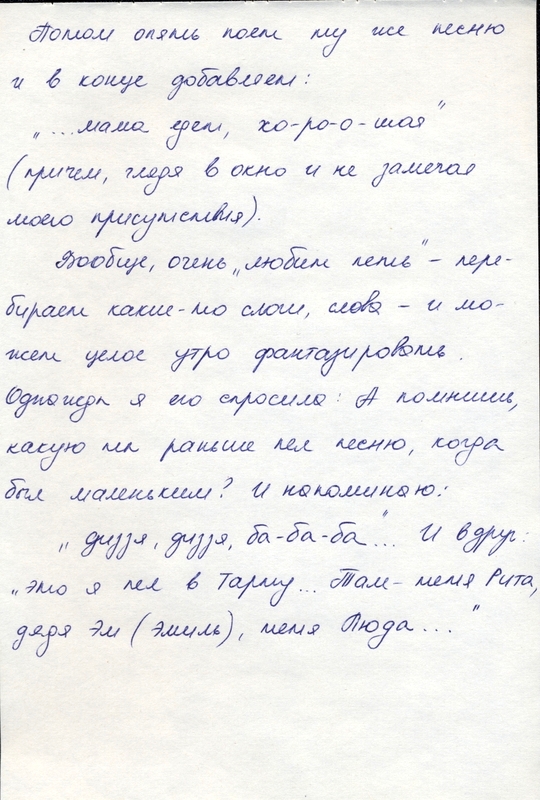 Потом опять поет ту же песню
и в конце добавляет:
„...мама едет, хо-ро-о-шая"
(причем, глядя в окно и не замечая
моего присутствия).
Вообще, очень „любит петь" – пере-
бирает какие-то слоги, слова – и мо-
жет целое утро фантазировать.
Однажды я его спросила: А помнишь,
какую ты раньше пел песню, когда
был маленьким? И напоминаю:
„дизя, дизя, ба-ба-ба"... И вдруг:
„это я пел в Тарту... Там – тетя Рита,
дядя Эм (Эмиль), тетя Люда..."